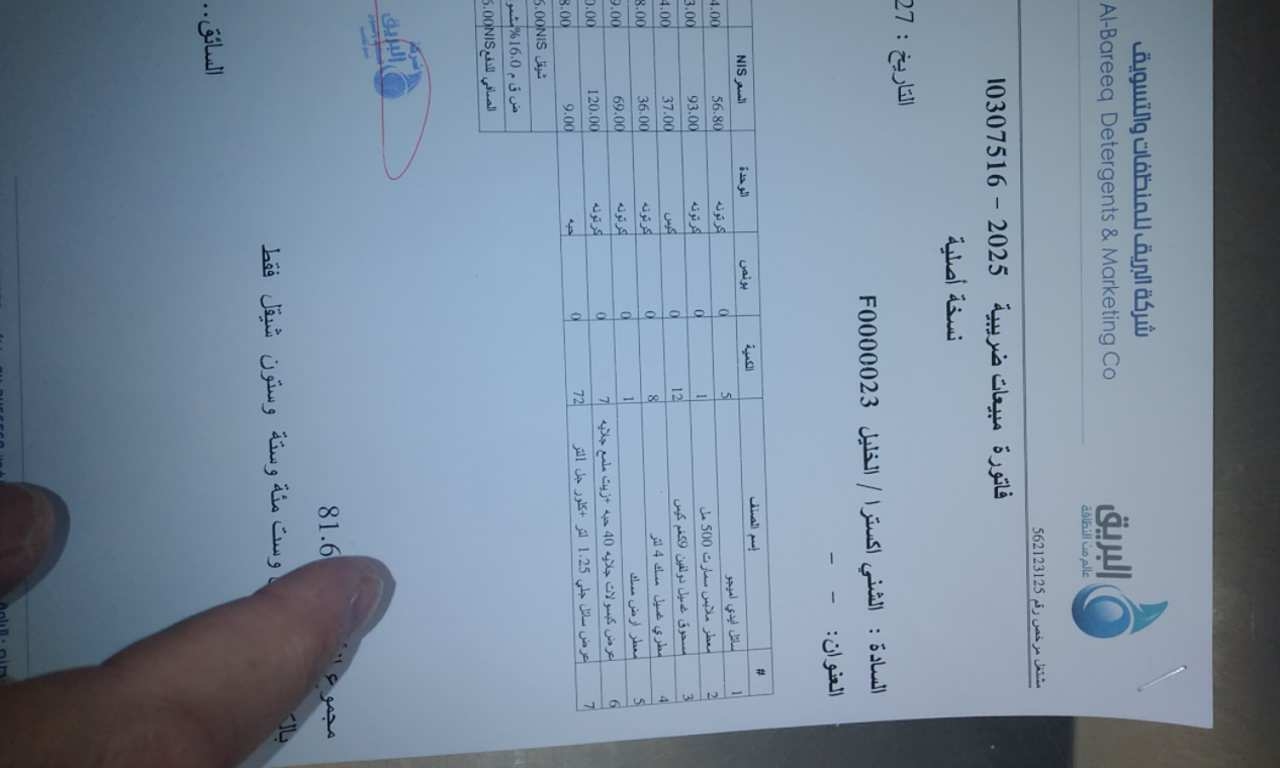 شركة البريق للمنظفات والتسويق
Al-Bareeq Detergents & Marketing Co
البريق
عالم من النظافة
مشتغل مرخص رقم 562123125
فاتورة مبيعات ضريبية 2025 - I0307516
نسخة أصلية
التاريخ : 27
السادة : الشني اكسترا / الخليل F0000023
العنوان: - -
# إسم الصنف الكمية بونص الوحدة السعر NIS
1 سائل ليدي 5 0 كرتونه 56.80 4.00
2 معطر ملابس سمارت 500 مل 1 0 كرتونه 93.00 3.00
3 مسحوق غسيل دولفين 9كغم كيس 12 0 كيس 37.00 4.00
4 معطري غسيل مسك 4 لتر 8 0 كرتونه 36.00 8.00
5 معطر ارض مسك 1 0 كرتونه 69.00 9.00
6 عرض كبسولات جلايه 40 حبه +زيت ملمع جلايه 7 0 كرتونه 120.00 0.00
7 عرض سائل جلي 1.25 لتر +كلور جل 1لتر 72 0 حبه 9.00 8.00
شيقل 6.00NIS
ض ق م 16.0%
الصافي للدفع 6.00NIS
مجموع 81.6
وست مئة وستة وستون شيقل فقط
شركة
البريق
السائق..